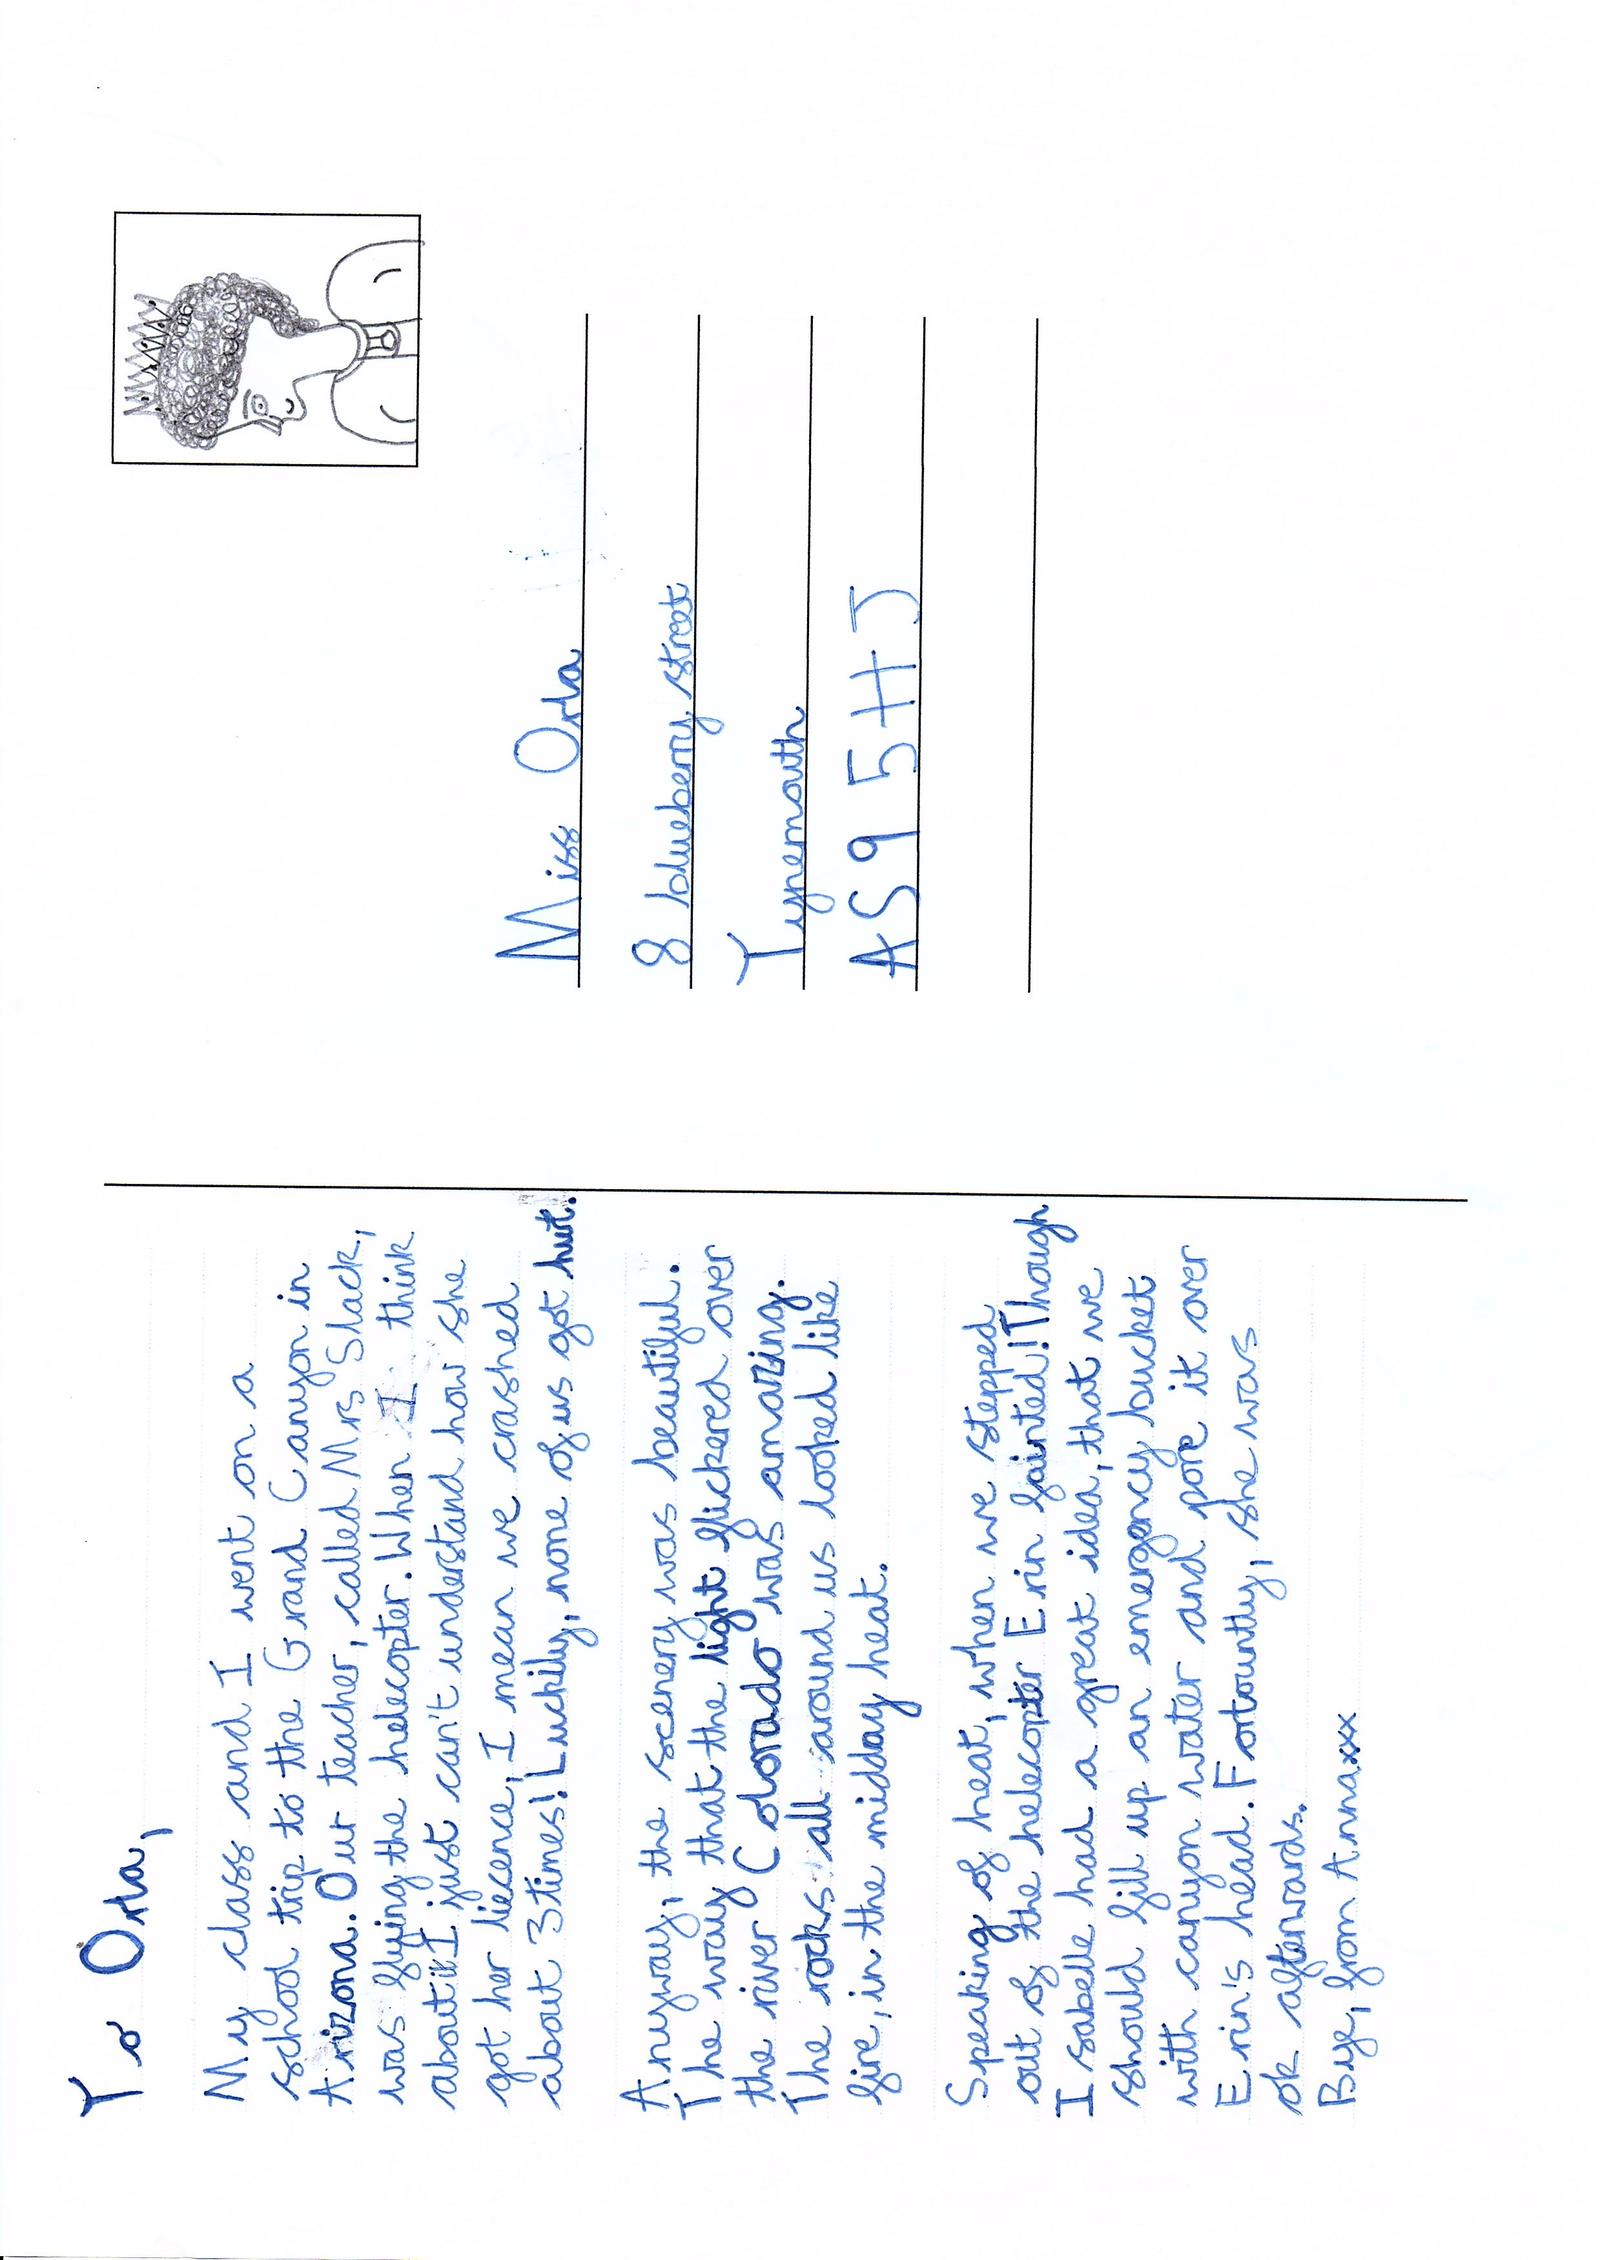 To Orla,
My class and I went on a
school trip to the Grand Canyon in
Arizona. Our teacher, called Mrs Slack,
was flying the helecopter. When I think
about it I just can't understand how she
got her liecence, I mean we crashed
about 3 times! Luckily, none of us got hurt.
Anyway, the scenery was beautiful.
The way that the light flickered over
the river Colorado was amazing.
The rocks all around us looked like
fire, in the midday heat.
Speaking of heat, when we stepped
out of the helecopter Erin fainted! Though
Isabelle had a great idea, that we
should fill up an emergency bucket
with canyon water and pore it over
Erin's head. Fortountly, she was
ok afterwards.
Bye, from Anna xxx
Miss Orla
8 blueberry street
Tynemouth
AS9 5HJ